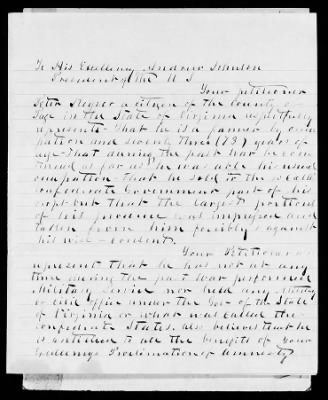 To His Excellency Andrew Johnson
President of the U S
Your petitioner
Peter a citizen of the County of
Page in the State of Virginia respectfully
represents that he is a farmer by occu
pation and seventy three (73) years of
age. That during the past war he con
tinued as far as he was able his usual
occupation - that he sold to the so called
Confederate Government part of his
crops but that the largest portions
of his produce was impressed and
taken from him forcibly & against
his will
Your Petitioner
represent that he has not at any
time during the past war performed
Military Service nor held any Military
or civil office under the Gov of the State
of Virginia or what was called the
Confederate States. Also believes that he
is entitled to all the benefits of your
Excellency's Proclamation of Amnesty